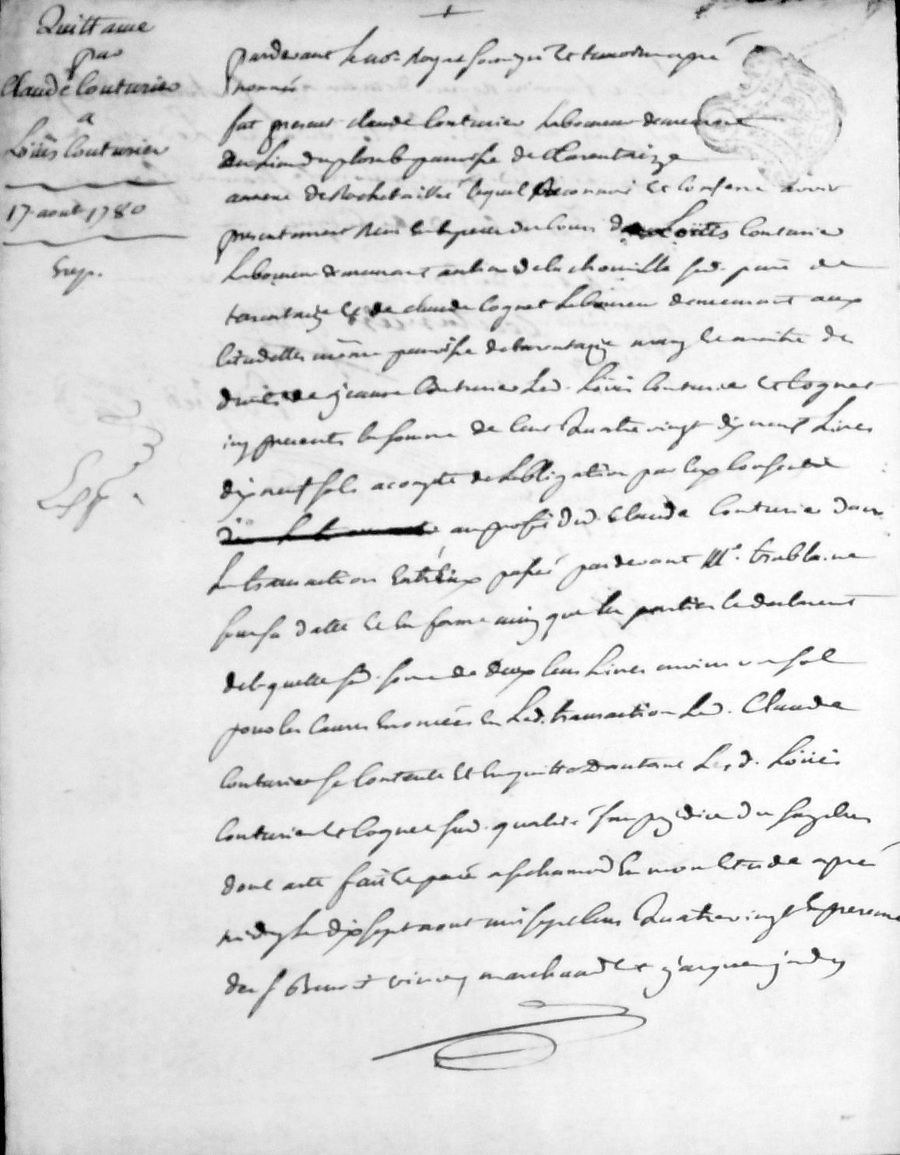 Quittance
par
Claude Couturier
a
Loüis Couturier
17 aout 1780
Exp.
pardevant le no.re Royal soussigné et temoins aprés
nommés
fut present claude Couturier laboureur demeurant
au lieu du plomb paroisse de Tarentaize
annexe de Rochetaillée lequel Reconnoit et Confesse avoir
presentement Reçu en especes du Cours de Loüis Couturier
laboureur demeurant au lieu de la sud. parr. de
tarentaize et de claude Coquet laboureur demeurant aux
Citadelles même paroisse de tarentaize may et maitre de
droits de jeanne Couturier Led. Loüis Couturier et Coquet
icy presents la somme de Cent Quatre vingt dix neuf Livres
dix neuf sols acompte de l'obligation par Eux Consentie
au profit dud. Claude Couturier dans
La transaction Entr'Eux passée pardevant M.e
sous sa datte et en forme ainsy que les parties le declarent
de laquelle sd. somme de Deux Cens Livres moins un sol
pour les Causes Enoncées en Lad. transaction Led. Claude
Couturier se Contente et en quitte D'autant Lesd. Loüis
Couturier et Coquet sud. qualité sans prejudice du surplus
dont acte fait et passé a st chamond En mon Etude aprés
midy Le dix sept aout mil sept cens Quatre vingt En presence
de s.r Benoit marchand et jacques